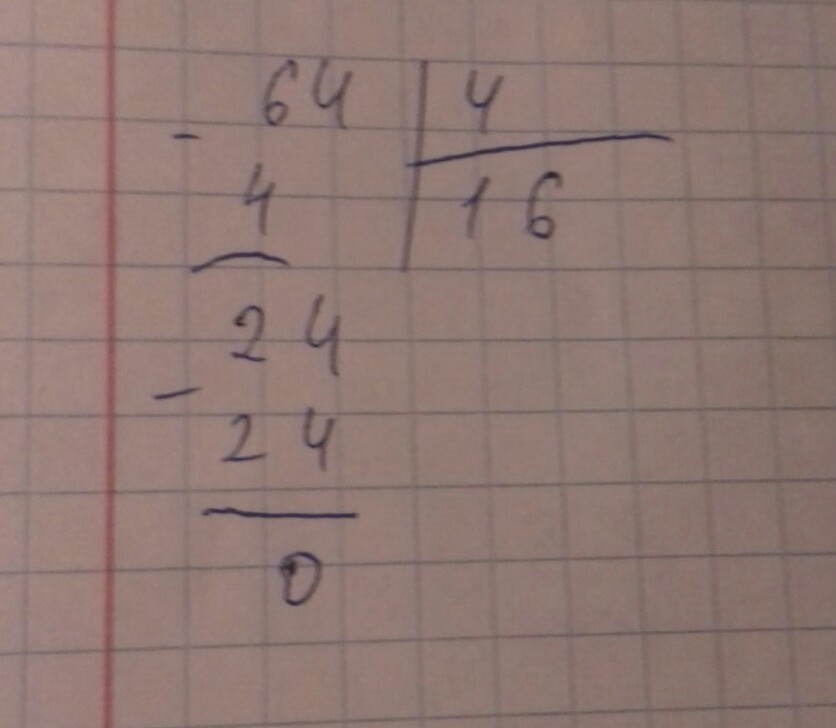 64 | 4
- 4 | 16
24
- 24
0